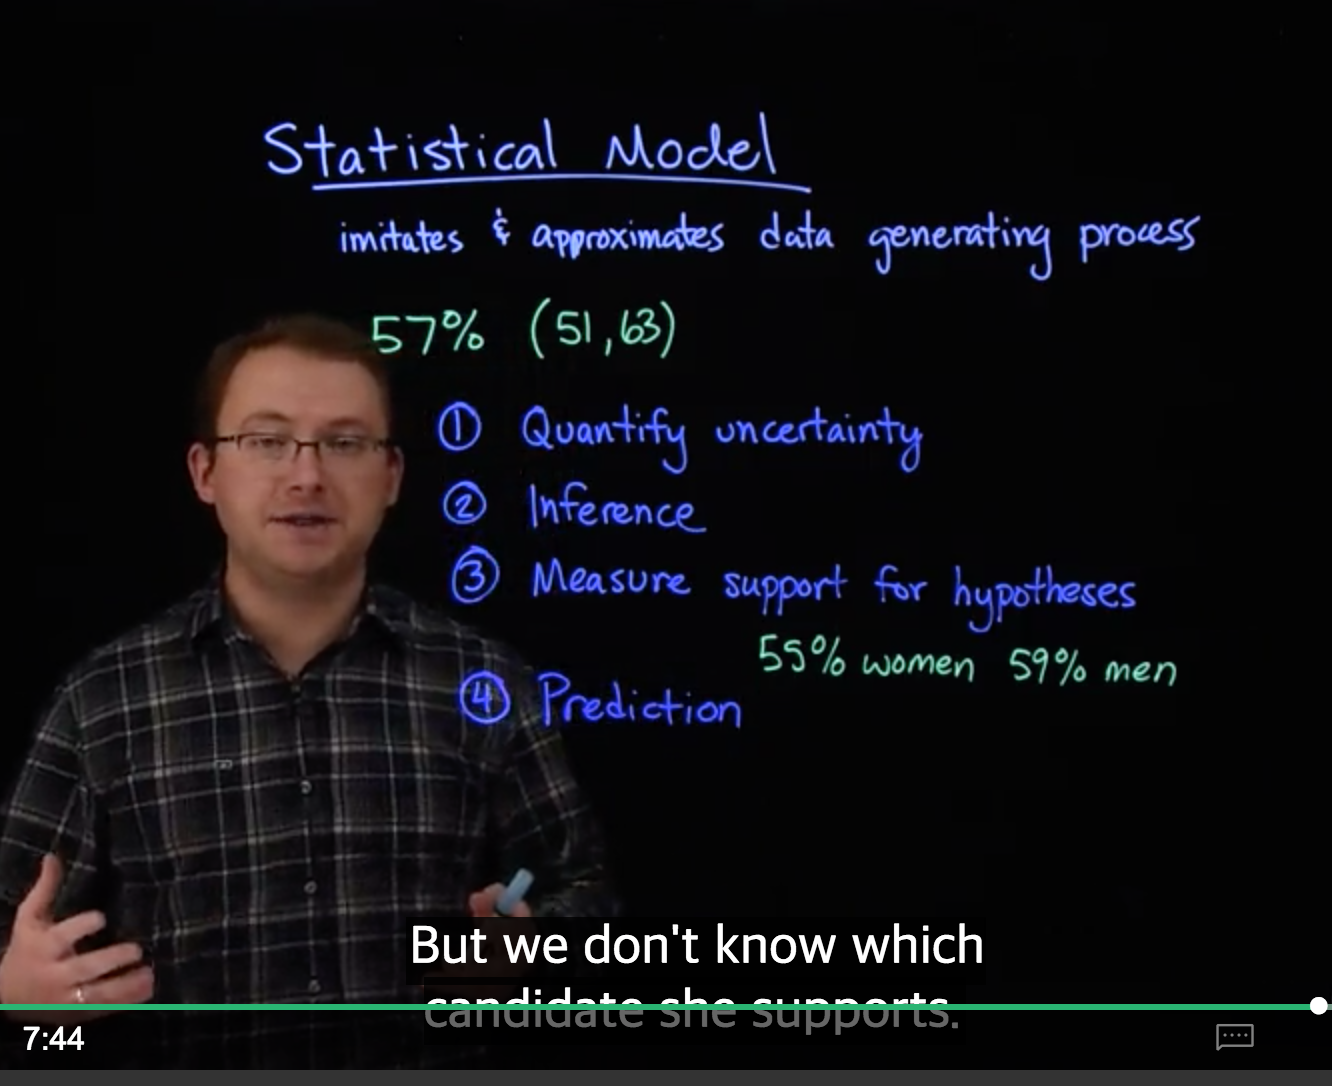 Statistical Model
imitates & approximates data generating process
57% (51,63)
① Quantify uncertainty
② Inference
③ Measure support for hypotheses
55% women 59% men
④ Prediction
But we don't know which
candidate she supports.
7:44